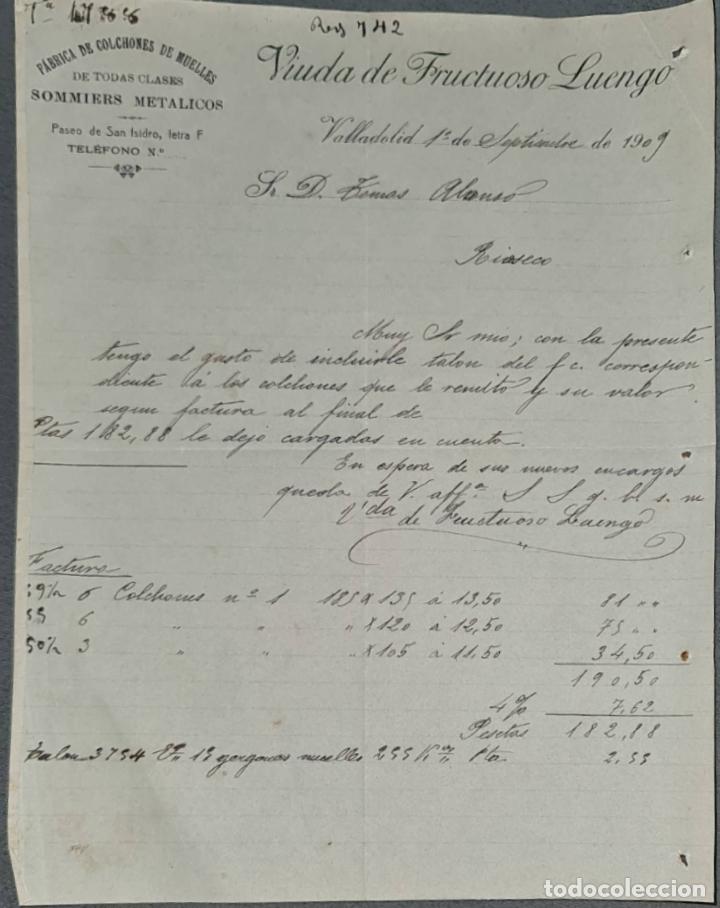 Reg 742
FÁBRICA DE COLCHONES DE MUELLES
DE TODAS CLASES
SOMMIERS METALICOS
Paseo de San Isidro, letra F
TELÉFONO N.º
Viuda de Fructuoso Luengo
Valladolid 1º de Septiembre de 1909
Sr. D. Tomas Alonso
Rioseco
Muy Sr mio; con la presente
tengo el gusto de incluirle talon del f c. correspon-
diente á los colchones que le remito y su valor
segun factura al final de
Ptas 182,88 le dejo cargadas en cuenta.
En espera de sus nuevos encargos
queda de V. affª S S q. b. s. m
Vda de Fructuoso Luengo
Factura
6 Colchones nº 1 185 x 135 á 13,50 81 " "
55 6 " " " x 120 á 12,50 75 " "
50½ 3 " " " x 105 á 11,50 34,50
190,50
4% 7,62
Pesetas 182,88
Talon 3754 15 gergones muelles 255 Ks Pta 2,55
todocoleccion